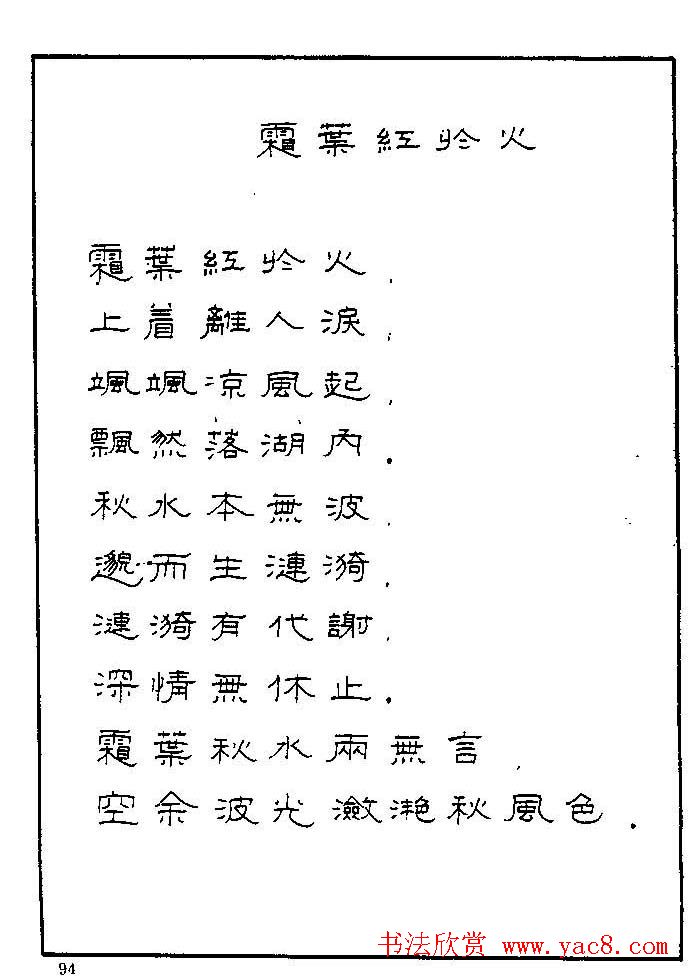 霜葉紅於火
霜葉紅於火，
上着離人淚，
颯颯凉風起，
飄然落湖內．
秋水本無波，
邈而生漣漪，
漣漪有代謝，
深情無休止．
霜葉秋水兩無言，
空余波光瀲滟秋風色．
书法欣赏 www.yac8.com
94